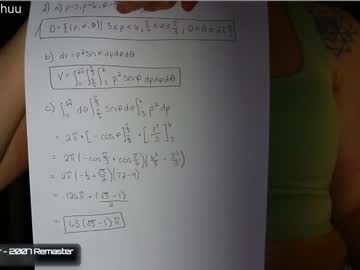 huu
2) a) ρ=3, ρ=6,
D = {(ρ, φ, θ) | 3 ≤ ρ ≤ 6, π/6 ≤ φ ≤ π/3, 0 ≤ θ ≤ 2π}
b) dv = ρ² sin φ dρ dφ dθ
V = ∫₀^2π ∫_π/6^π/3 ∫₃⁶ ρ² sin φ dρ dφ dθ
c) ∫₀^2π dθ ∫_π/6^π/3 sin φ dφ ∫₃⁶ ρ² dρ
= 2π * [-cos φ]_π/6^π/3 * [ρ³/3]₃⁶
= 2π (-cos π/3 + cos π/6) (6³/3 - 3³/3)
= 2π (-1/2 + √3/2) (72 - 9)
= 126π * (√3 - 1)/2
= 63 (√3 - 1) π
- 2007 Remaster